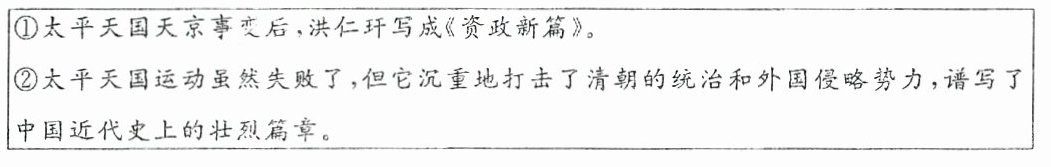 ①太平天国天京事变后,洪仁玕写成《资政新篇》。
②太平天国运动虽然失败了,但它沉重地打击了清朝的统治和外国侵略势力,谱写了
中国近代史上的壮烈篇章。